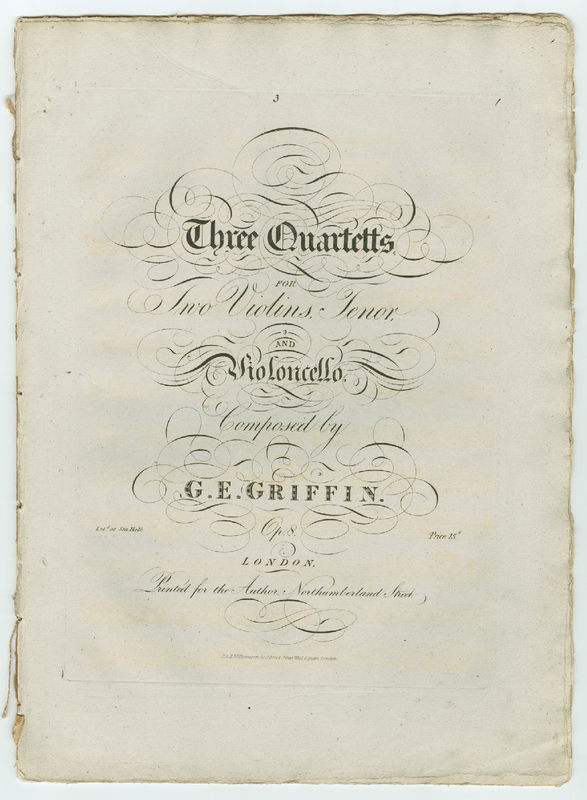 3 1
Three Quartetts,
FOR
Two Violins, Tenor,
AND
Violoncello.
Composed by
G. E. GRIFFIN.
Op. 8.
Ent.d at Sta. Hall. Price 15.s
LONDON,
Printed for the Author, Northumberland Street.
London.